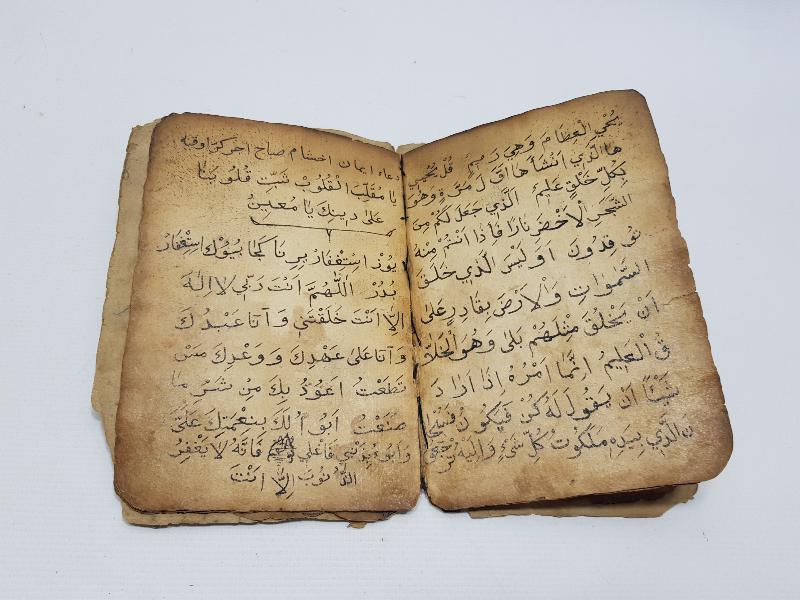 يُحْيِ الْعِظَامَ وَهِيَ رَمِيمٌ قُلْ يُحْيِيهَا
هَا الَّذِي اَنْشَأَهَا اَوَّلَ مَرَّةٍ وَهُوَ
بِكُلِّ خَلْقٍ عَلِيمٌ الَّذِي جَعَلَ لَكُمْ مِنَ
الشَّجَرِ الْاَخْضَرِ نَارًا فَاِذَا اَنْتُمْ مِنْهُ
تُو قِدُونَ اَوَ لَيْسَ الَّذِي خَلَقَ
السَّمٰوَاتِ وَالْاَرْضَ بِقَادِرٍ عَلٰى
اَنْ يَخْلُقَ مِثْلَهُمْ بَلٰى وَهُوَ الْخَلَّا
قُ الْعَلِيمُ اِنَّمَا اَمْرُهُ اِذَا اَرَا دَ
شَيْئًا اَنْ يَقُولَ لَهُ كُنْ فَيَكُونُ فَسُبْحَا
نَ الَّذِي بِيَدِهِ مَلَكُوتُ كُلِّ شَيْءٍ وَاِلَيْهِ تُرْجَعُونَ
دعاء ايمان اخشام صباح اجر كراوقيه
يَا مُقَلِّبَ الْقُلُوبْ ثَبِّتْ قُلُوبَنَا
عَلٰى دِينِكَ يَا مُعِينُ
يُوزْ اسْتِغْفَارْ بِرْ اسْتِغْفَارْ
بُدُرْ اَللّٰهُمَّ اَنْتَ رَبِّي لَا اِلٰهَ
اِلَّا اَنْتَ خَلَقْتَنِي وَ اَنَا عَبْدُكَ
وَ اَنَا عَلٰى عَهْدِكَ وَ وَعْدِكَ مَسْ
تَطَعْتُ اَعُوذُ بِكَ مِنْ شَرِّ مَا
صَنَعْتُ اَبُوأُ لَكَ بِنِعْمَتِكَ عَلَيَّ
وَاَبُوءُ بِذَنْبِي فَاغْفِرْلِي فَاِنَّهُ لَا يَغْفِرُ
الذُّنُوبَ اِلَّا اَنْتَ